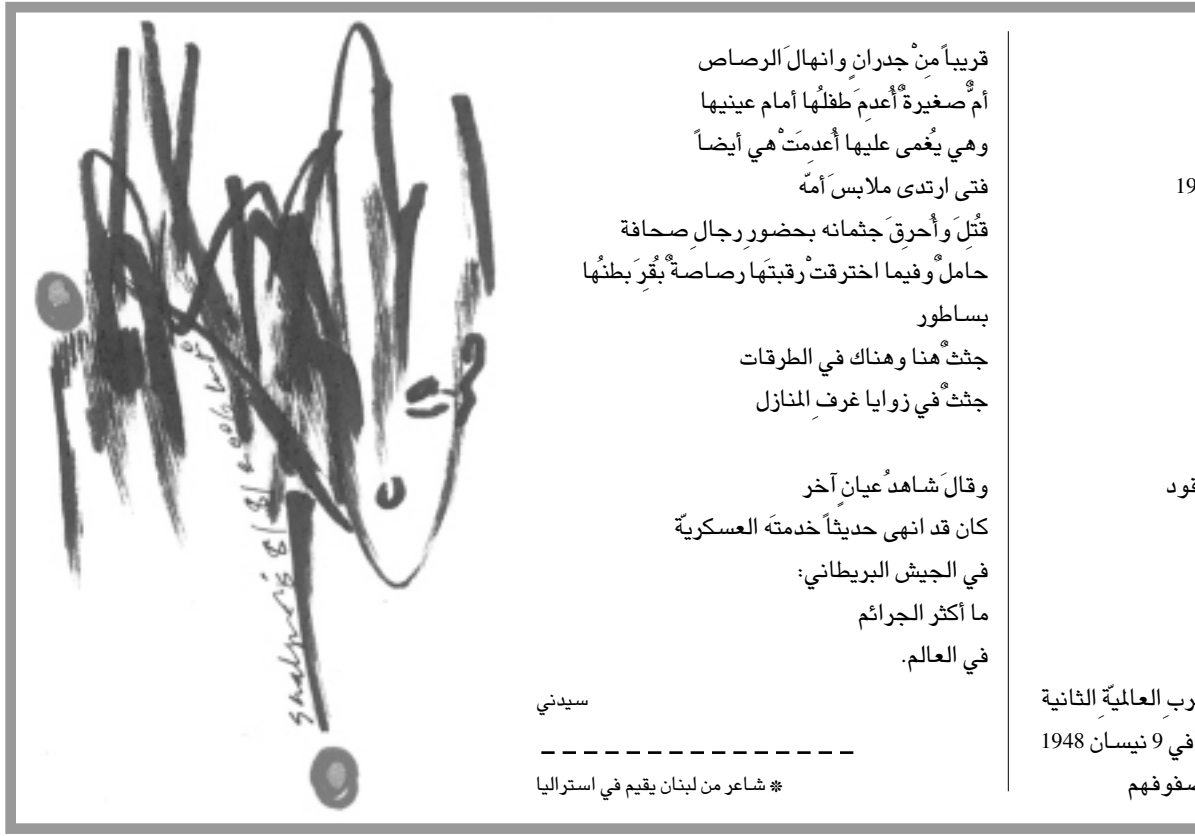 19
قود
رب العالميّةِ الثانية
في 9 نيسان 1948
صفوفهم
قريباً منْ جدرانٍ وانهالَ الرصاص
أمٌّ صغيرةٌ أُعدِمَ طفلُها أمام عينيها
وهي يُغمى عليها أُعدمَتْ هي أيضاً
فتى ارتدى ملابسَ أمّه
قُتِلَ وأُحرِقَ جثمانه بحضورِ رجالِ صحافة
حاملٌ وفيما اخترقتْ رقبتَها رصاصةٌ بُقِرَ بطنُها
بساطور
جثثٌ هنا وهناك في الطرقات
جثثٌ في زوايا غرفِ المنازل
وقالَ شاهدُ عيانٍ آخر
كان قد انهى حديثاً خدمتَه العسكريّة
في الجيش البريطاني:
ما أكثر الجرائم
في العالم.
سيدني
* شاعر من لبنان يقيم في استراليا